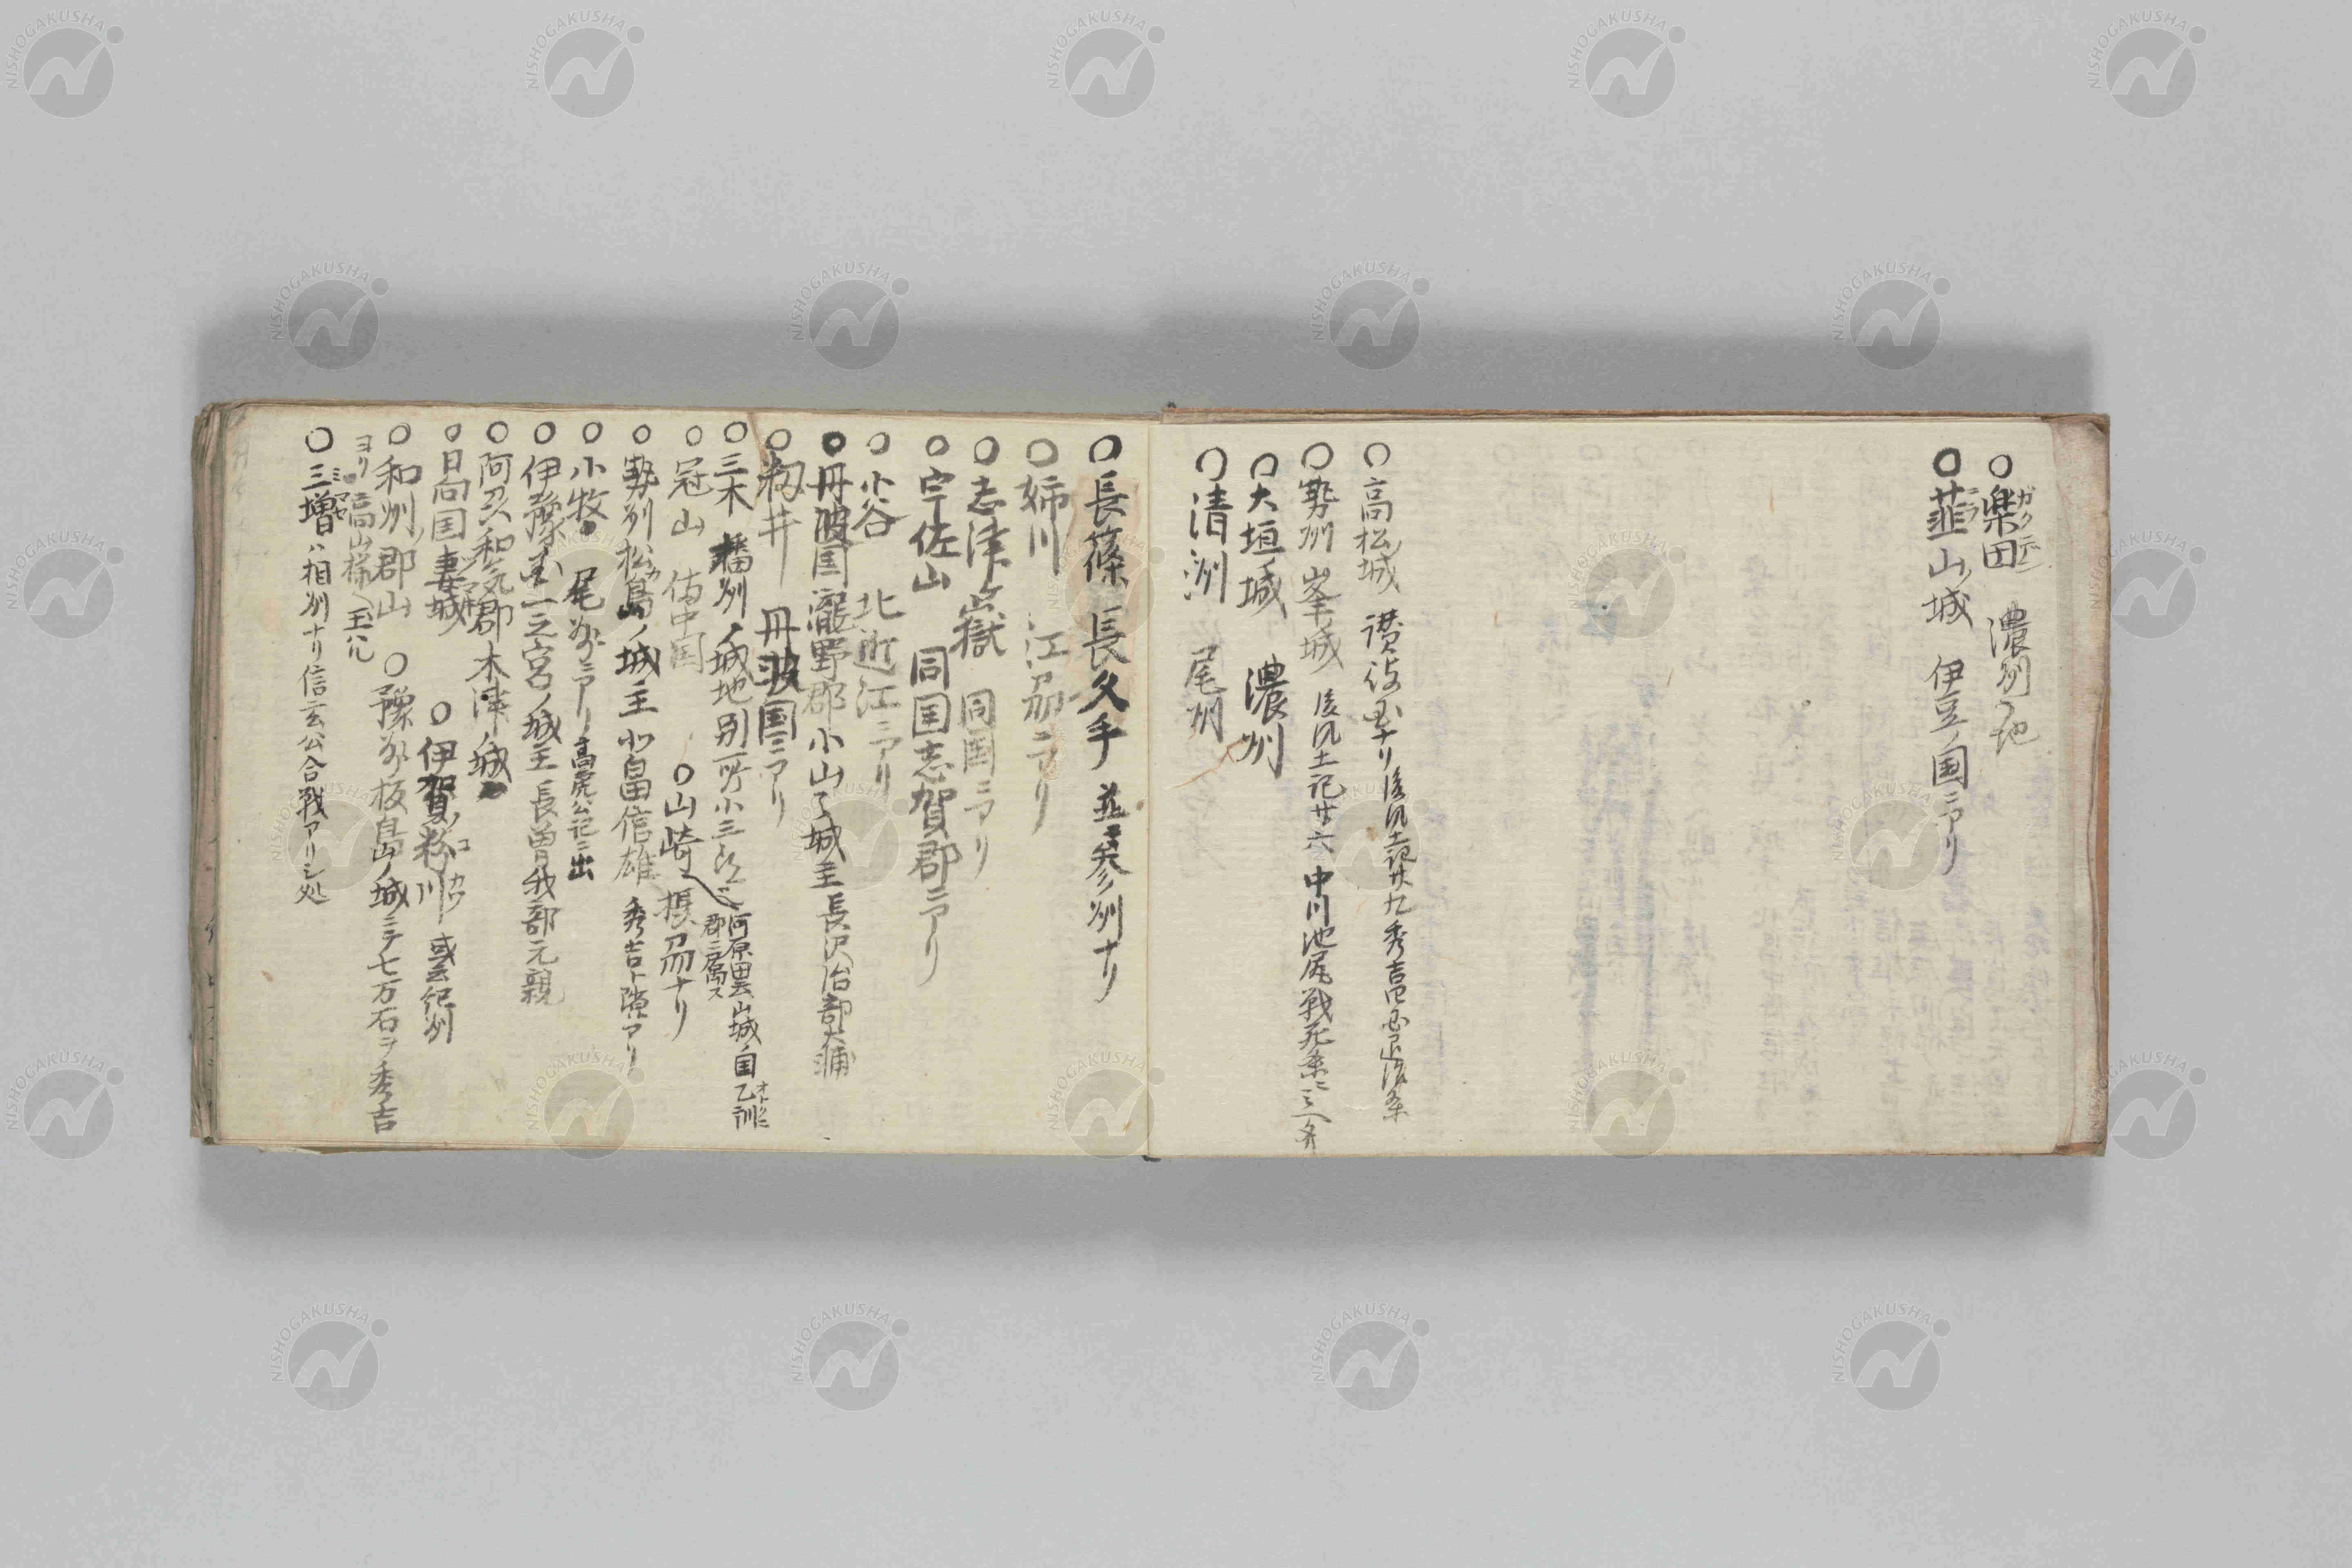 ○楽田 濃州ノ地
ガクデン
○韮山城 伊豆ノ国ニアリ
ニラ
○高松城 讃岐
○勢州峯城 後風土記廿六 中川池尻戦死条ニミヘタリ
○大垣城 濃州
○清洲 尾州
○長篠 長久手 並参州ナリ
○姉川 江刕ニアリ
○志津ヶ嶽 同国ニアリ
○宇佐山 同国志賀郡ニアリ
○小谷 北近江ニアリ
○丹波国瀧野郡小山ノ城主長沢治部大輔
○籾井 丹波国ニアリ
○三木 播州ノ城地別所小三郎
河原 山城ノ国乙訓
オトクニ
郡ニ属ス
○冠山 備中国 ○山崎 摂刕ナリ
○勢州松ヶ島ノ城主北畠信雄 秀吉ト隙アリ
○小牧 尾州ニアリ 高虎公記ニ出
○伊豫国一之宮ノ城主長曽我部元親
○阿刕和気郡木津ノ城
○日向国妻城 ○伊賀粉川 或云紀州
コカワ
○和州郡山 ○豫州板島ノ城ニテ七万石ヲ秀吉
ヨリ高山様ヘ玉ハル
○三増ハ相州ナリ信玄公合戦アリシ処
ミマセ
NISHOGAKUSHA